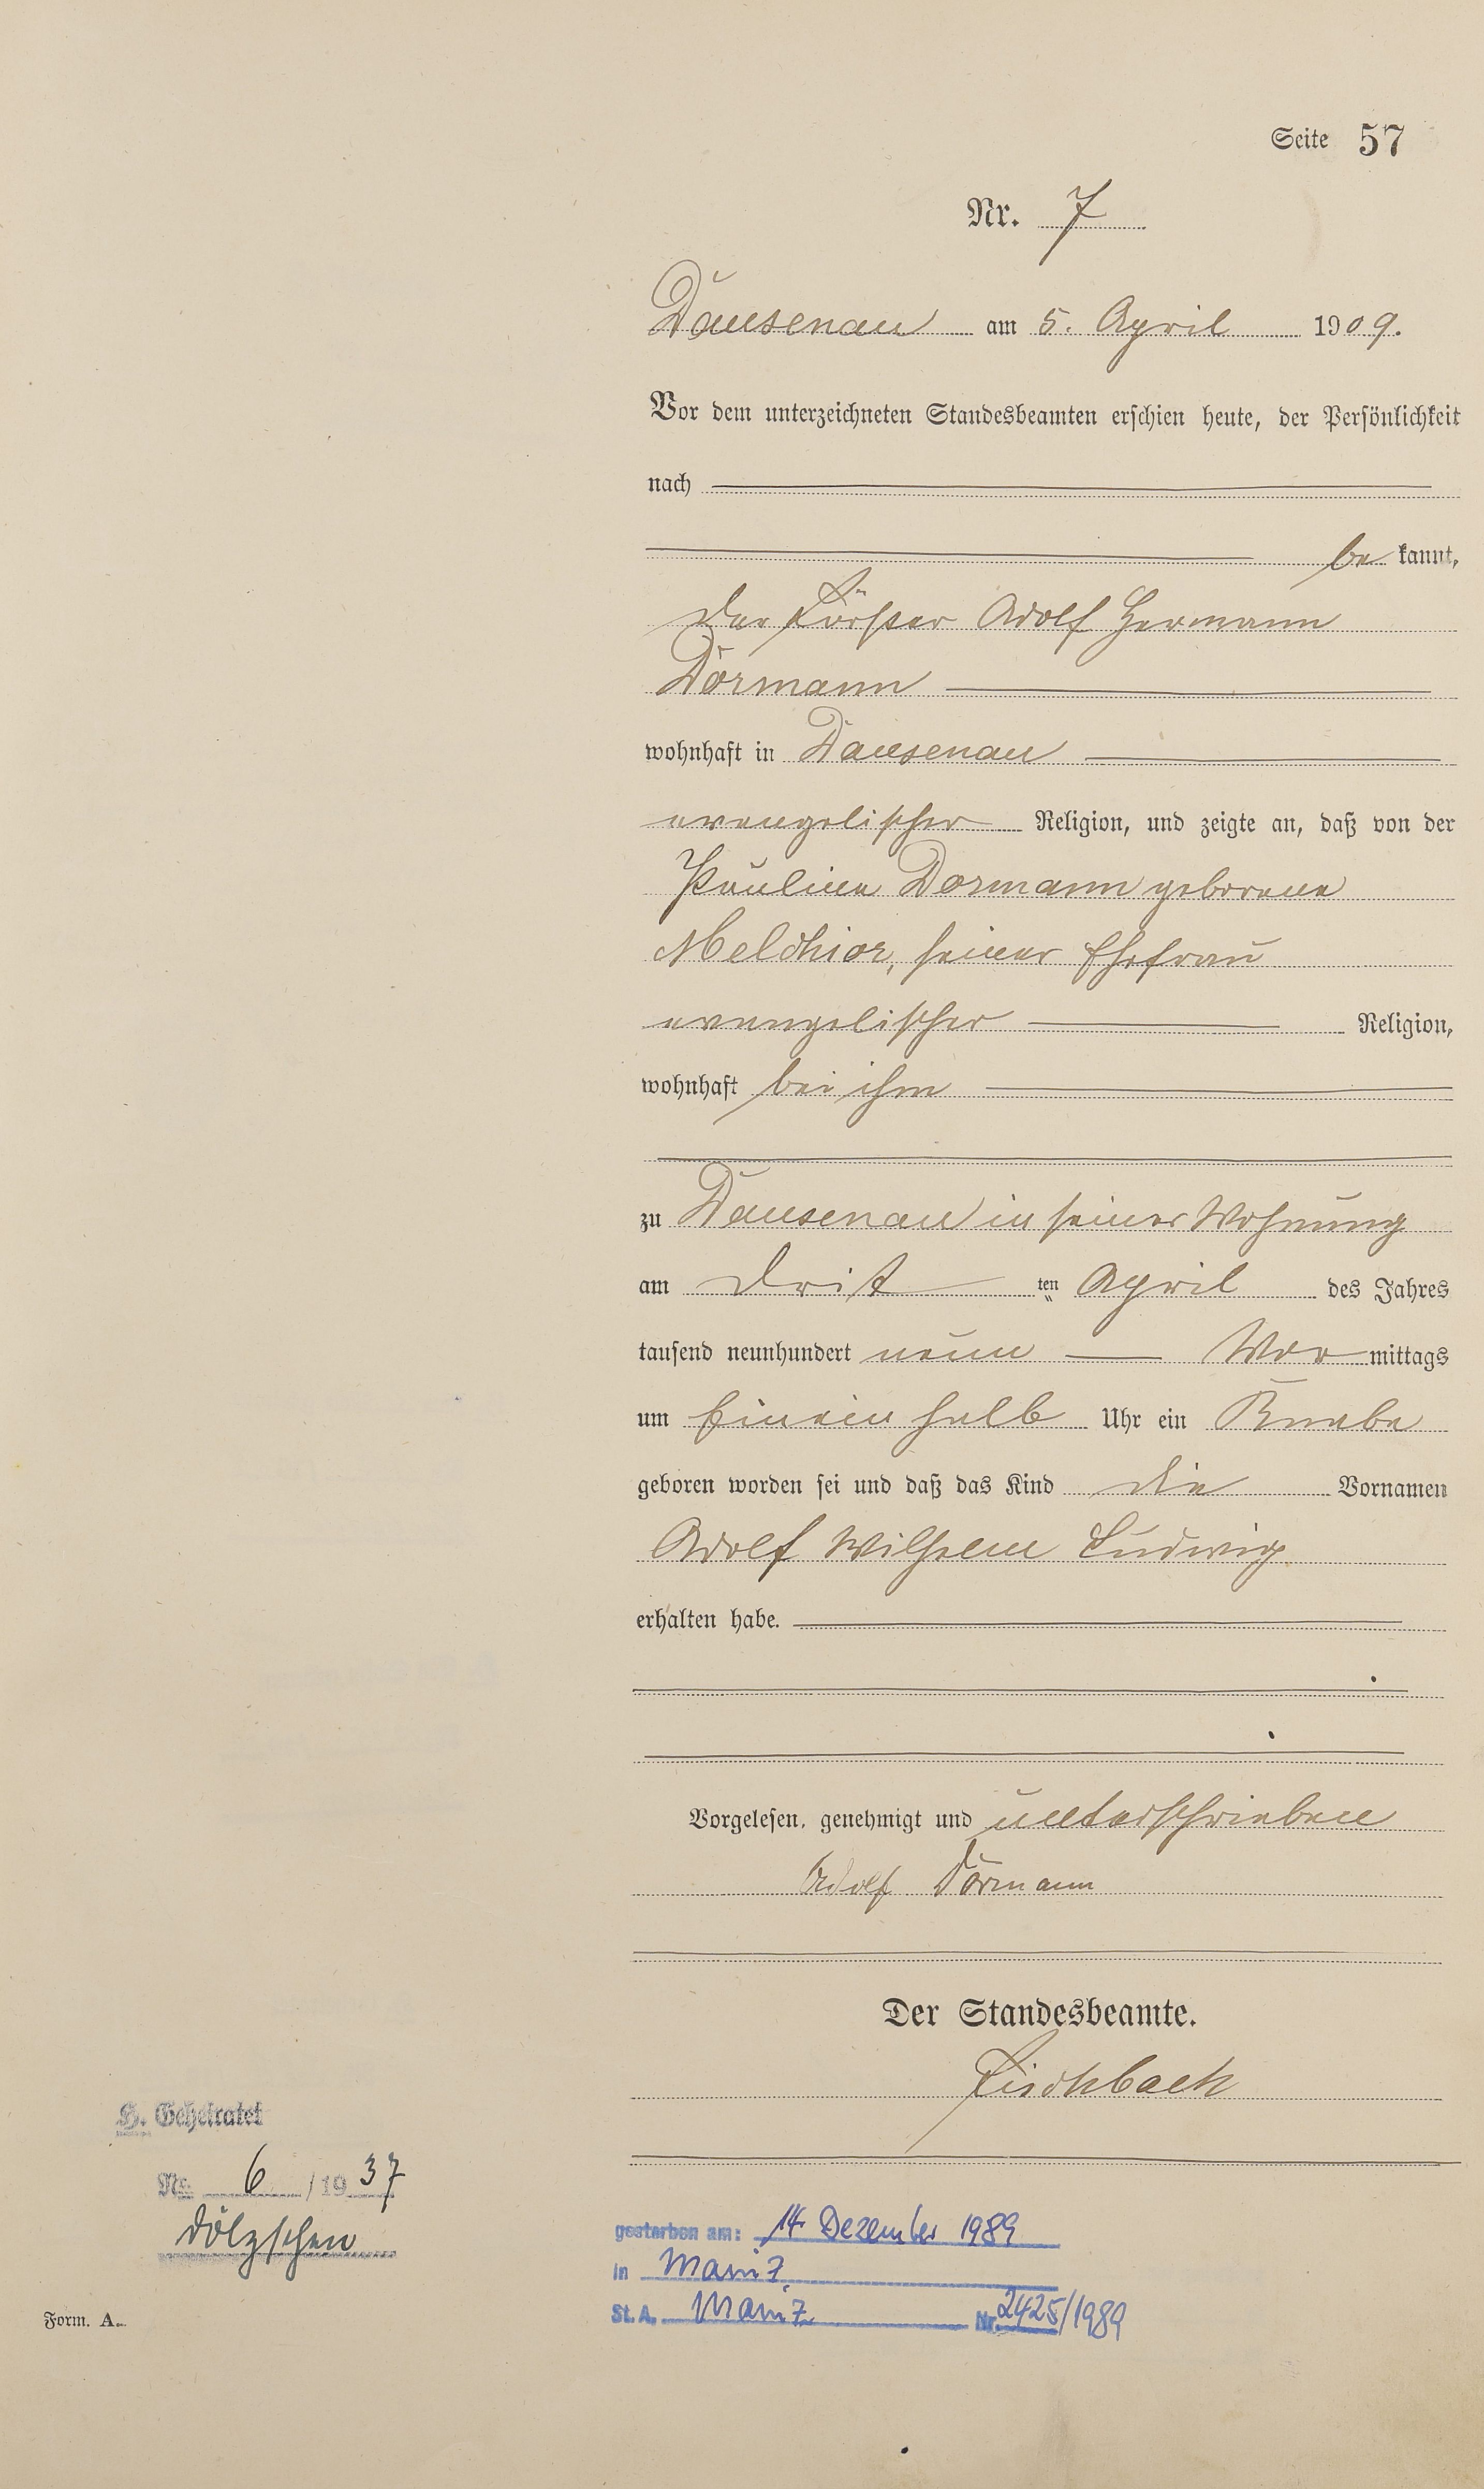 Seite 57
Nr. 7
Dausenau am 5. April 1909.
Vor dem unterzeichneten Standesbeamten erschien heute, der Persönlichkeit
nach
be kannt,
der Förster Adolf Hermann
Dörmann
wohnhaft in Dausenau
evangelischer Religion, und zeigte an, daß von der
Pauline Dormann geborene
Melchior, seiner Ehefrau
evangelischer Religion,
wohnhaft bei ihm
zu Dausenau in seiner Wohnung
am dritten April des Jahres
tausend neunhundert neun Vormittags
um Einein halb Uhr ein Knabe
geboren worden sei und daß das Kind die Vornamen
Adolf Wilhelm Ludwig
erhalten habe.
Vorgelesen, genehmigt und unterschrieben
Adolf Dörmann
Der Standesbeamte.
Fischbach
H. Geheiratet
Nr. 6 / 1937
Dölzschen
gestorben am: 14. Dezember 1989
in Mainz
St. A. Mainz Nr. 2425/1989
Form. A.